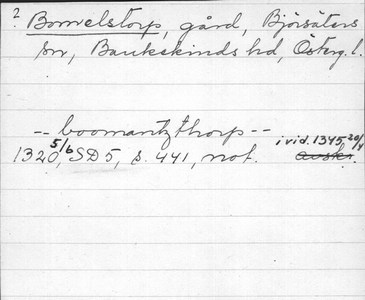 ? Bomelstorp, gård, Björsäters
sn, Bankekinds hd, Österg. l.
-- boomantzthorp --
1320 5/6, SD 5, s. 441, not. i vid. 1345 20/4
avskr.